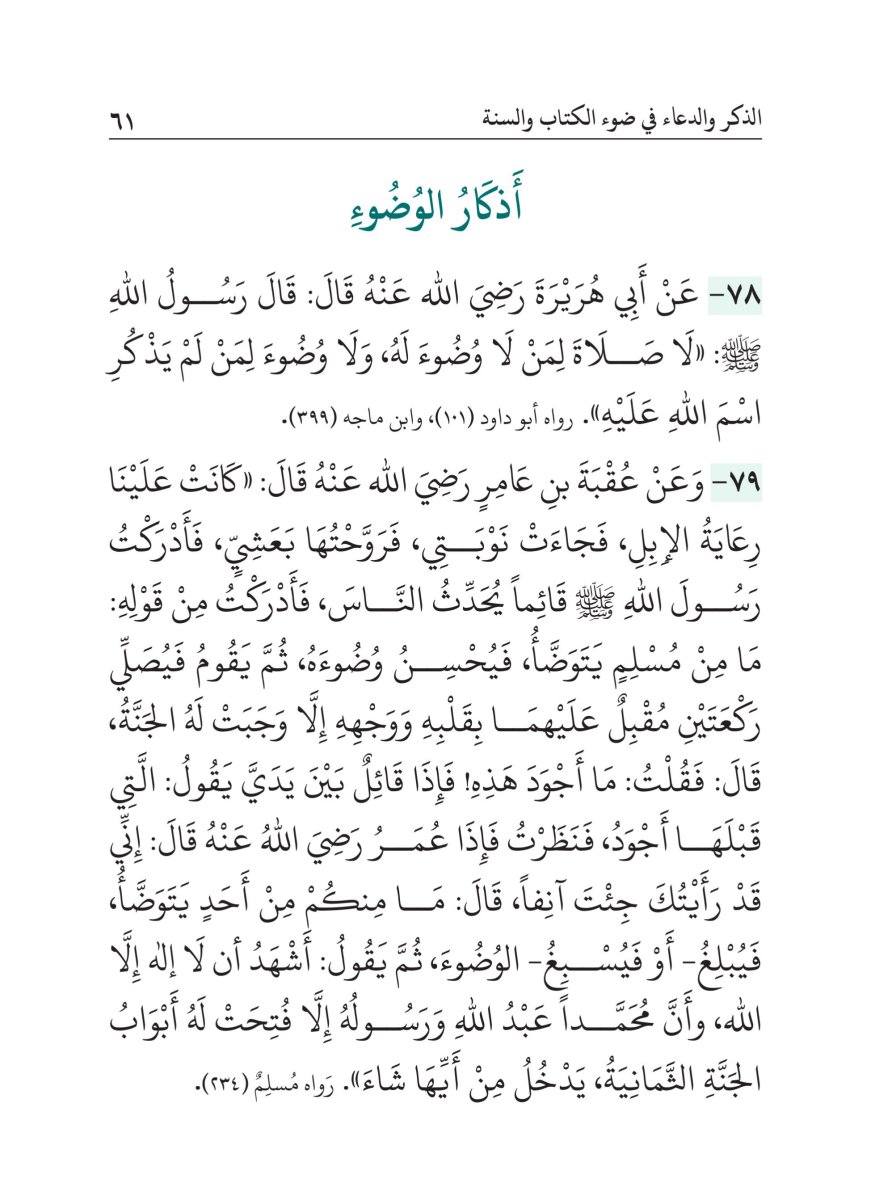 الذكر والدعاء في ضوء الكتاب والسنة ٦١
أَذكَارُ الوُضُوءِ
٧٨- عَنْ أَبِي هُرَيْرَةَ رَضِيَ الله عَنْهُ قَالَ: قَالَ رَسُولُ اللهِ
ﷺ: «لَا صَلَاةَ لِمَنْ لَا وُضُوءَ لَهُ، وَلَا وُضُوءَ لِمَنْ لَمْ يَذْكُرِ
اسْمَ اللهِ عَلَيْهِ». رواه أبو داود (١٠١)، وابن ماجه (٣٩٩).
٧٩- وَعَنْ عُقْبَةَ بنِ عَامِرٍ رَضِيَ الله عَنْهُ قَالَ: «كَانَتْ عَلَيْنَا
رِعَايَةُ الإِبِلِ، فَجَاءَتْ نَوْبَتِي، فَرَوَّحْتُهَا بَعَشِيٍّ، فَأَدْرَكْتُ
رَسُولَ اللهِ ﷺ قَائِماً يُحَدِّثُ النَّاسَ، فَأَدْرَكْتُ مِنْ قَوْلِهِ:
مَا مِنْ مُسْلِمٍ يَتَوَضَّأُ، فَيُحْسِنُ وُضُوءَهُ، ثُمَّ يَقُومُ فَيُصَلِّي
رَكْعَتَيْنِ مُقْبِلٌ عَلَيْهِمَا بِقَلْبِهِ وَوَجْهِهِ إِلَّا وَجَبَتْ لَهُ الجَنَّةُ،
قَالَ: فَقُلْتُ: مَا أَجْوَدَ هَذِهِ! فَإِذَا قَائِلٌ بَيْنَ يَدَيَّ يَقُولُ: الَّتِي
قَبْلَهَا أَجْوَدُ، فَنَظَرْتُ فَإِذَا عُمَرُ رَضِيَ اللهُ عَنْهُ قَالَ: إِنِّي
قَدْ رَأَيْتُكَ جِئْتَ آنِفاً، قَالَ: مَا مِنكُمْ مِنْ أَحَدٍ يَتَوَضَّأُ،
فَيُبْلِغُ- أَوْ فَيُسْبِغُ- الوُضُوءَ، ثُمَّ يَقُولُ: أَشْهَدُ أن لَا إلهَ إِلَّا
الله، وأَنَّ مُحَمَّداً عَبْدُ اللهِ وَرَسُولُهُ إِلَّا فُتِحَتْ لَهُ أَبْوَابُ
الجَنَّةِ الثَّمَانِيَةُ، يَدْخُلُ مِنْ أَيِّهَا شَاءَ». رَواه مُسلِمٌ (٢٣٤).